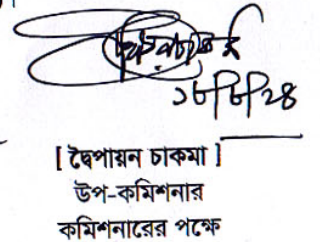 ১৮/৮/২৪
[ দ্বৈপায়ন চাকমা ]
উপ-কমিশনার
কমিশনারের পক্ষে